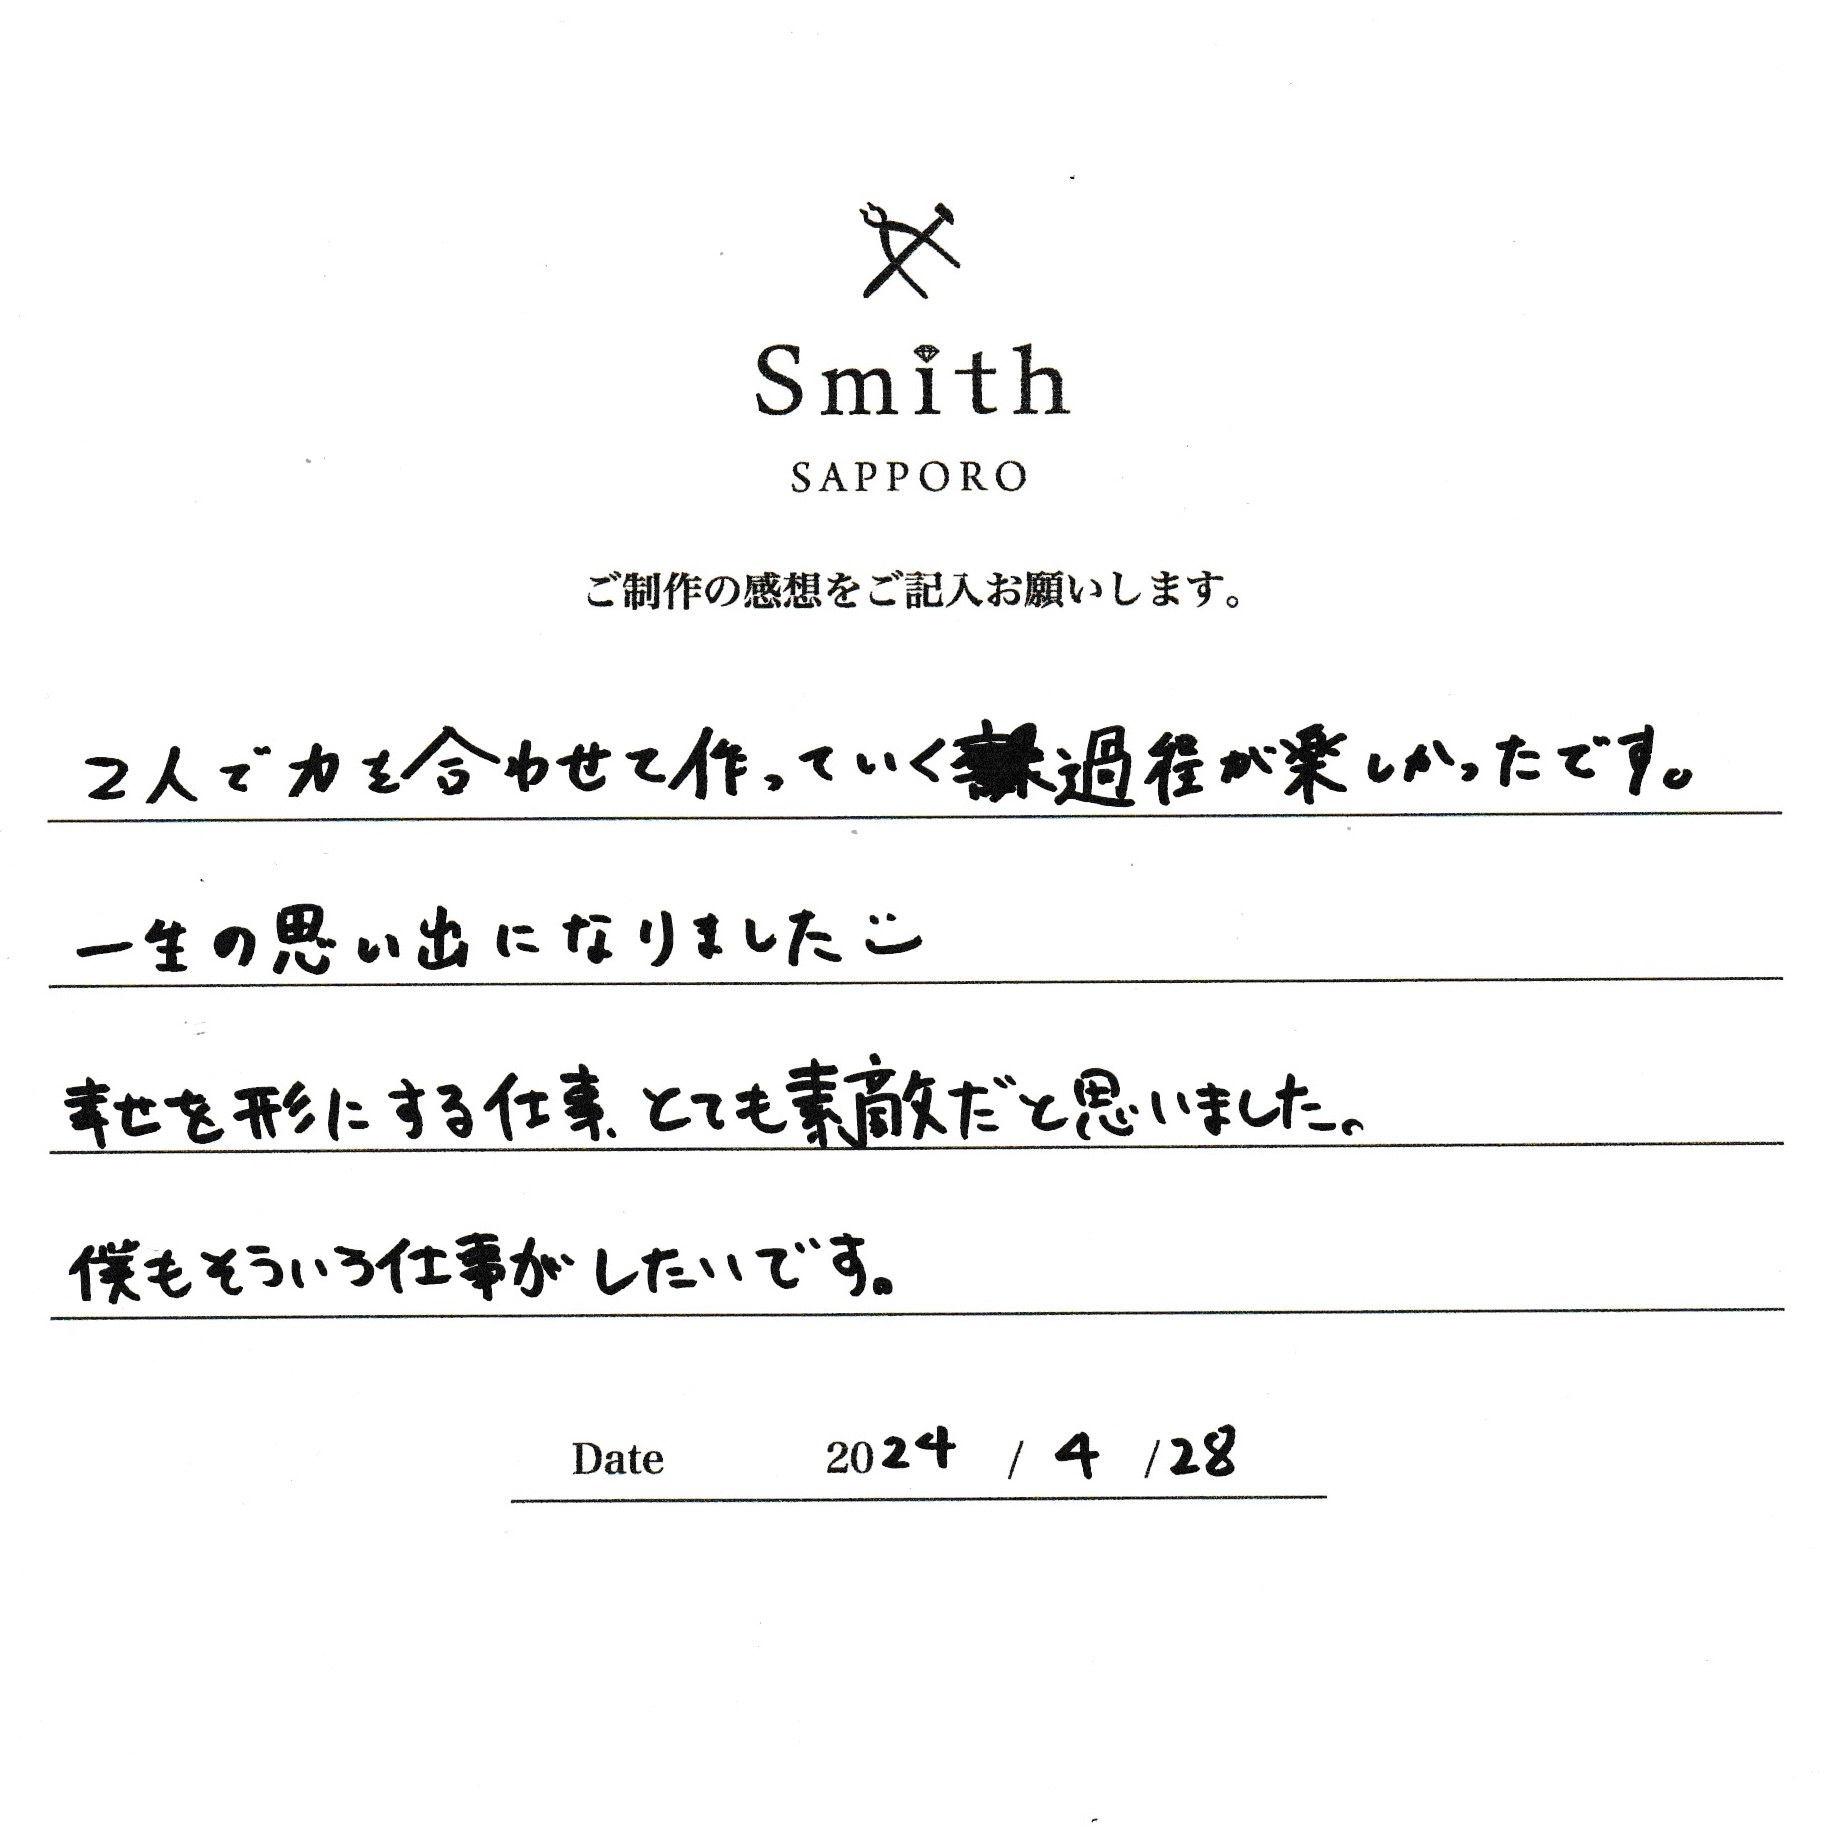 Smith
SAPPORO
ご制作の感想をご記入お願いします。
2人で力を合わせて作っていく過程が楽しかったです。
一生の思い出になりました
幸せを形にする仕事、とても素敵だと思いました。
僕もそういう仕事がしたいです。
Date 2024 / 4 / 28